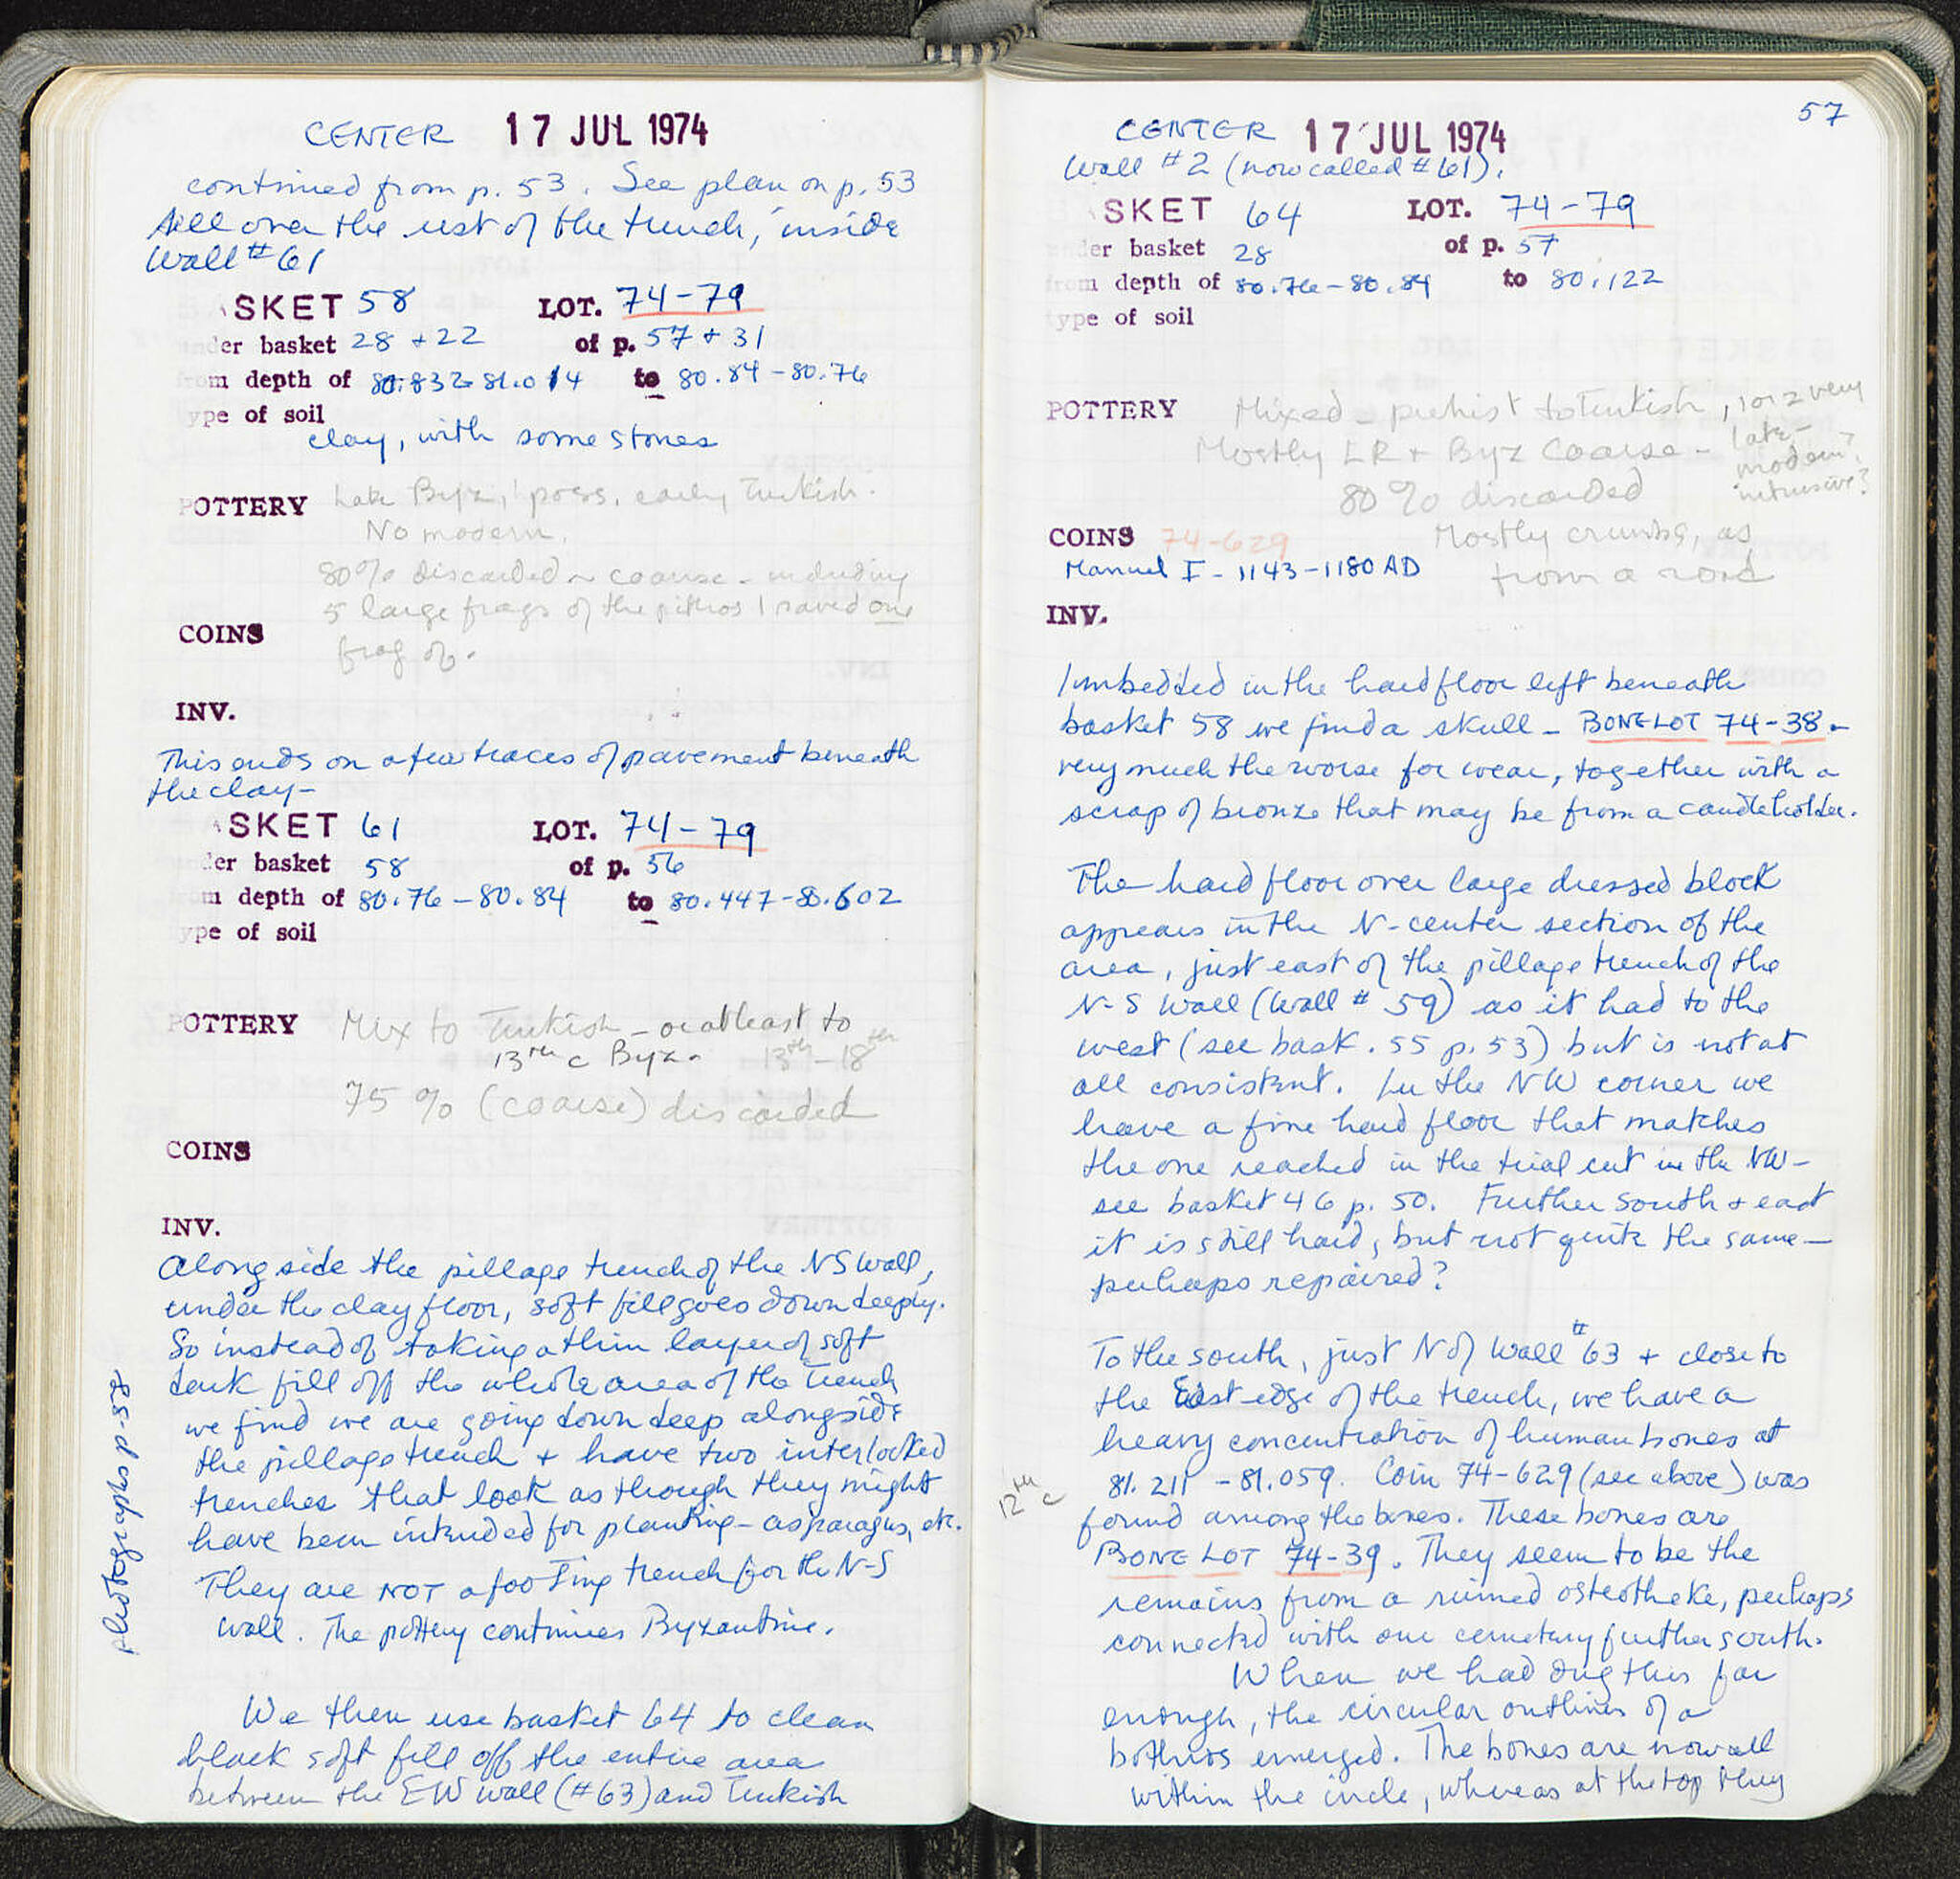 CENTER 17 JUL 1974
continued from p. 53. See plan on p. 53
All over the rest of the trench, inside
Wall #61
ASKET 58 LOT. 74-79
under basket 28 + 22 of p. 57 + 31
from depth of 80.832-81.014 to 80.84-80.76
type of soil
clay, with some stones
POTTERY Late Byz, poss. early Turkish.
No modern.
80% discarded ~ coarse - including
5 large frags of the pithos I saved one
frag of.
COINS
INV.
This ends on a few traces of pavement beneath
the clay-
ASKET 61 LOT. 74-79
under basket 58 of p. 56
from depth of 80.76-80.84 to 80.447-80.602
type of soil
POTTERY Mix to Turkish - or at least to
13th c Byz. 13th-18th
75% (coarse) discarded
COINS
INV.
Alongside the pillage trench of the NS wall,
under the clay floor, soft fill goes down deeply.
So instead of taking a thin layer of soft
dark fill off the whole area of the trench
we find we are going down deep alongside
the pillage trench + have two interlocked
trenches that look as though they might
have been intruded for planting - asparagus, etc.
They are NOT a footing trench for the N-S
wall. The pottery continues Byzantine.
photographs p.
We then use basket 64 to clean
black soft fill off the entire area
between the EW wall (#63) and Turkish
57
CENTER 17 JUL 1974
Wall #2 (now called #61).
ASKET 64 LOT. 74-79
under basket 28 of p. 57
from depth of 80.76-80.84 to 80.122
type of soil
POTTERY Mixed - prehist to Turkish, 1 or 2 very
late-
modern?
intrusive?
Mostly LR + Byz Coarse -
80% discarded
COINS 74-629 Mostly crumbs, as
Manuel I - 1143-1180 AD from a road
INV.
Imbedded in the hard floor left beneath
basket 58 we find a skull - BONE LOT 74-38 -
very much the worse for wear, together with a
scrap of bronze that may be from a candleholder.
The hard floor over large dressed block
appears in the N-center section of the
area, just east of the pillage trench of the
N-S wall (wall # 59) as it had to the
west (see bask. 55 p. 53) but is not at
all consistent. In the NW corner we
have a fine hard floor that matches
the one reached in the trial cut in the NW-
see basket 46 p. 50. Further south + east
it is still hard, but not quite the same -
perhaps repaired?
To the south, just N of Wall #63 + close to
the East edge of the trench, we have a
heavy concentration of human bones at
81.211 - 81.059. Coin 74-629 (see above) was
12th c
found among the bones. These bones are
BONE LOT 74-39. They seem to be the
remains from a ruined osteotheke, perhaps
connected with our cemetery further south.
When we had dug this far
enough, the circular outlines of a
bothros emerged. The bones are now all
within the circle, whereas at the top they